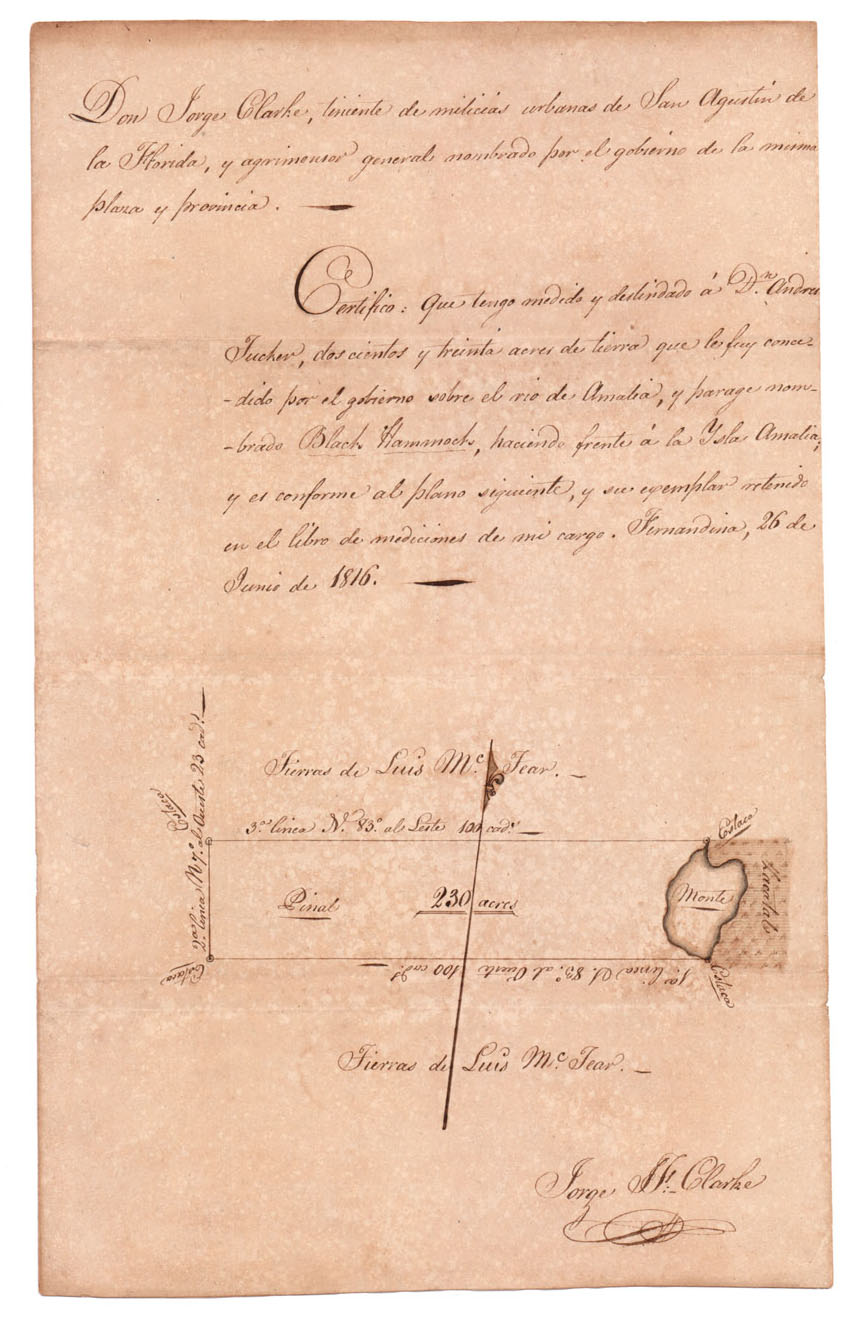 Don Jorge Clarke, teniente de milicias urbanas de San Agustin de
la Florida, y agrimensor general nombrado por el gobierno de la misma
plaza y provincia.
Certifico: Que tengo medido y deslindado á Dn. Andres
Tucker, dos cientos y treinta acres de tierra que le fuy conce-
-dido por el gobierno sobre el rio de Amalia, y parage nom-
-brado Black Hammock, haciendo frente á la Ysla Amalia;
y es conforme al plano siguiente, y su exemplar retenido
en el libro de mediciones de mi cargo. Fernandina, 26 de
Junio de 1816.
Tierras de Luis Mc. Tear.
3a. linea N. 83o. al Leste 100 cads.
Estaca
Estaca
2a. linea N 7o. al Oueste 23 cads.
Pinal
230 acres
Monte
Estaca
1a. linea S. 83o. al Oueste 100 cads.
Estaca
Tierras de Luis Mc. Tear.
Jorge J. F. Clarke